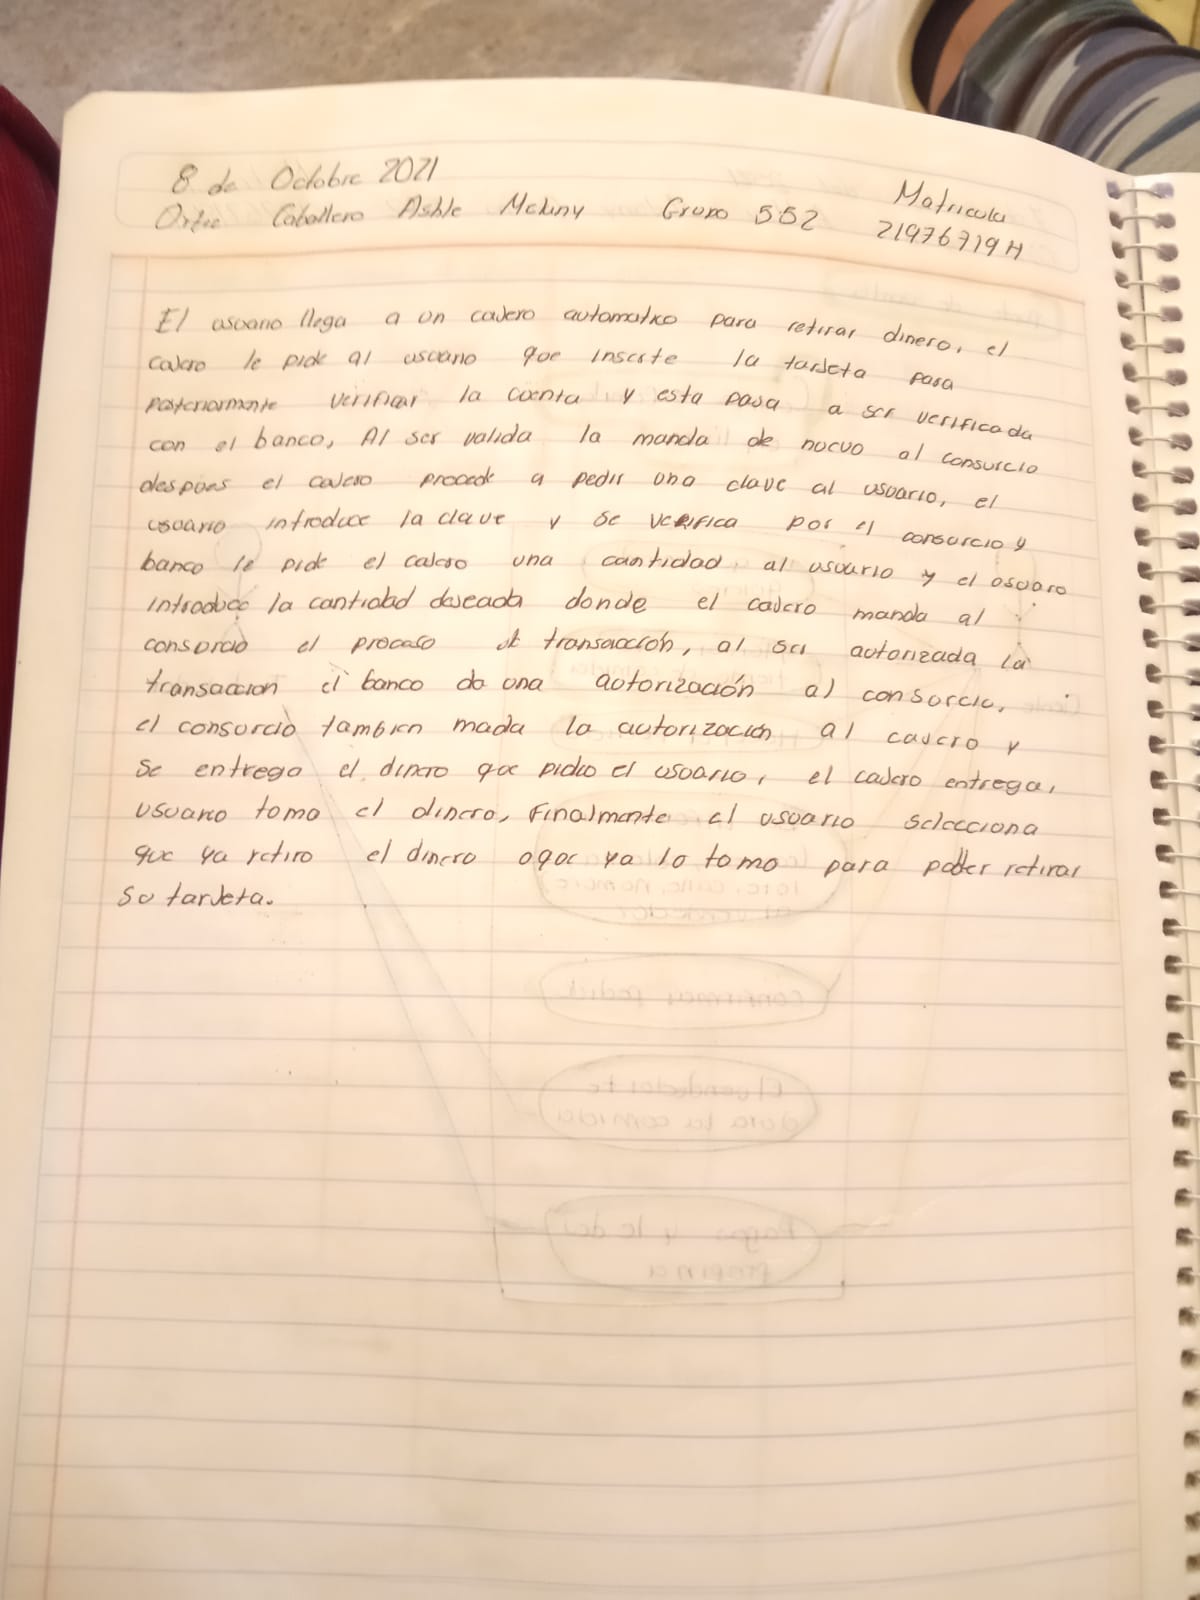 8 de Octubre 2021
Matricula
Caballero Ashle Grupo 552
21976719H
El usuario llega a un cajero automatico para retirar dinero, el
cajero le pide al usuario que inserte la tarjeta para
posteriormente verificar la cuenta y esta pasa a ser verificada
con el banco, Al ser valida la manda de nuevo al consorcio
despues el cajero procede a pedir una clave al usuario, el
usuario introduce la clave y se verifica por el consorcio y
banco le pide el cajero una cantidad al usuario y el usuaro
introduce la cantidad deseada donde el cajero manda al
consorcio el procaso de transacción, al ser autorizada la
transaccion el banco da una autorización al consorcio,
el consorcio tambien mada la autorización al cajero y
se entrega el dinero que pidio el usuario, el cajero entrega,
usuario tomo el dinero, Finalmente el usuario selecciona
que ya retiro el dinero oque ya lo tomo para poder retirar
su tarjeta.
confirmas pedido
El vendedor te
dara la comida
Pagas y le das
propina